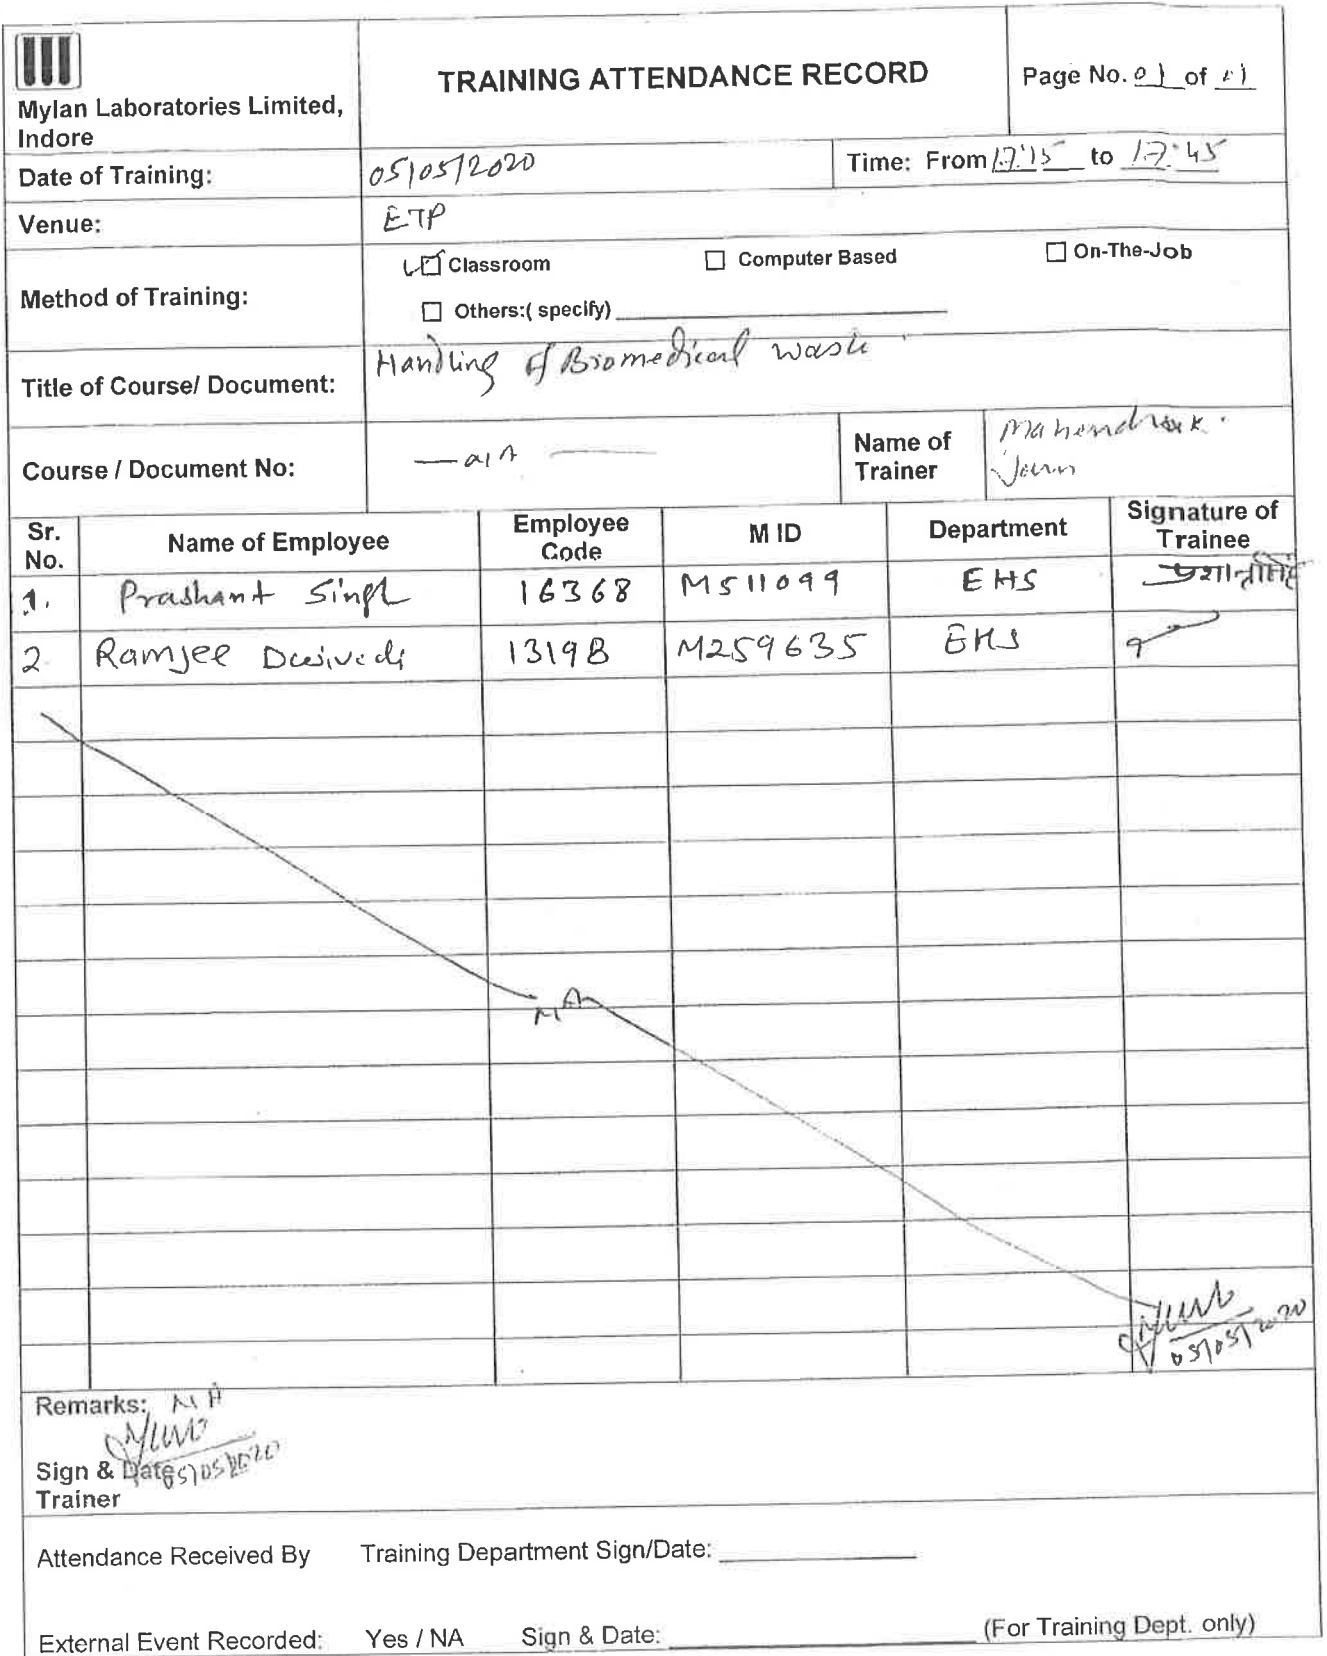 TRAINING ATTENDANCE RECORD
Page No. 01 of 01
Mylan Laboratories Limited,
Indore
Date of Training: 05/05/2020 Time: From 17:15 to 17:45
Venue: ETP
Method of Training: Classroom Computer Based On-The-Job
Others:( specify)
Title of Course/ Document: Handling of Biomedical waste
Course / Document No: NA Name of Trainer Mahendra K.
Sr. No. Name of Employee Employee Code M ID Department Signature of Trainee
1. Prashant Singh 16368 M511099 EHS
2. Ramjee Dwivedi 13198 M259635 EHS
NA
05/05/2020
Remarks: NA
Sign & Date 05/05/2020
Trainer
Attendance Received By Training Department Sign/Date:
External Event Recorded: Yes / NA Sign & Date: (For Training Dept. only)